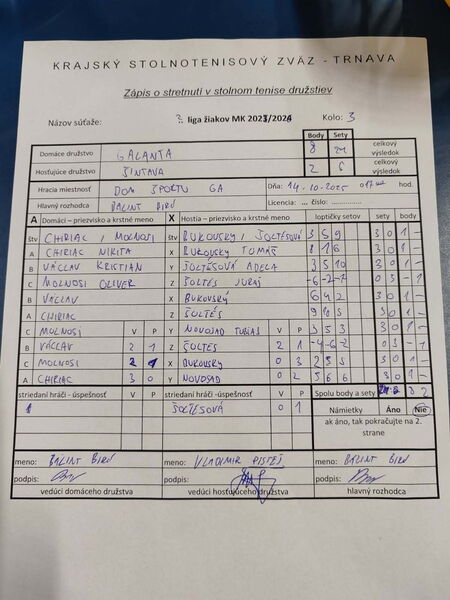 KRAJSKÝ STOLNOTENISOVÝ ZVÄZ - TRNAVA
Zápis o stretnutí v stolnom tenise družstiev
Názov súťaže: 3. liga žiakov MK 2023/2024 Kolo: 3
Body Sety
Domáce družstvo GALANTA 8 24 celkový výsledok
Hosťujúce družstvo ŠINTAVA 2 6 celkový výsledok
Hracia miestnosť DOM ŠPORTU GA Dňa: 14.10.2025 o 17 hod.
Hlavný rozhodca BALINT BIRÓ Licencia: ... číslo:
A Domáci – priezvisko a krstné meno X Hostia – priezvisko a krstné meno loptičky setov sety body
štv CHIRIAC, MOLNOSI štv BUKOVSKÝ, ŠOLTÉSOVÁ 3 5 9 3 0 1 -
A CHIRIAC NIKITA X BUKOVSKÝ TOMÁŠ 8 1 6 3 0 1 -
B VÁCLAV KRISTIAN Y ŠOLTÉSOVÁ ADELA 3 5 10 3 0 1 -
C MOLNOSI OLIVER Z ŠOLTÉS JURAJ -6 -2 -7 0 3 - 1
B VÁCLAV X BUKOVSKÝ 6 4 2 3 0 1 -
A CHIRIAC Z ŠOLTÉS 3 0 1 -
C MOLNOSI V P Y NOVOSAD TOBIAS V P 3 5 3 3 0 1 -
B VÁCLAV 2 1 Z ŠOLTÉS 2 1 -4 -6 -2 0 3 - 1
C MOLNOSI 2 1 X BUKOVSKÝ 0 3 3 0 1 -
A CHIRIAC 3 0 Y NOVOSAD 0 2 5 6 6 3 0 1 -
striedaní hráči - úspešnosť V P striedaní hráči - úspešnosť V P Spolu body a sety
ŠOLTÉSOVÁ 0 1 Námietky Áno Nie
ak áno, tak pokračujte na 2. strane
meno: BALINT BIRÓ meno: VLADIMÍR meno: BALINT BIRÓ
podpis: podpis: podpis:
vedúci domáceho družstva vedúci hosťujúceho družstva hlavný rozhodca